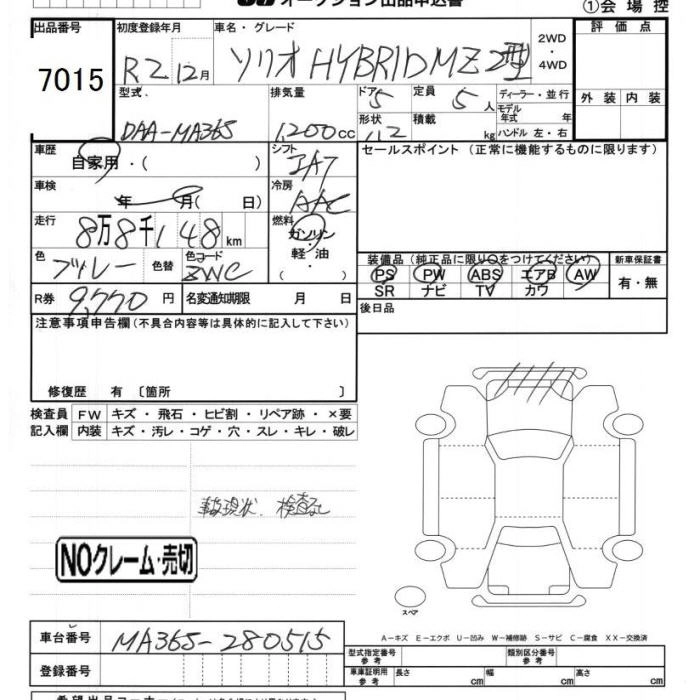 オークション出品申込書
①会場控
出品番号 7015
初度登録年月 R2 12月
車名・グレード ソリオ HYBRID MZ 2型
2WD・4WD
評価点
外装 内装
型式 DAA-MA36S
排気量 1,200cc
ドア 5 形状
定員 5人 積載 kg
ディーラー・並行
モデル年式 年
ハンドル 左・右
車歴 自家用・( )
シフト IAT
セールスポイント (正常に機能するものに限ります)
車検 年 月( 日)
冷房 AAC
走行 8万8千148km
燃料 ガソリン・軽油・( )
色 ブルー 色替 色コード ZWC
装備品 (純正品に限り○をつけてください)
新車保証書 有・無
PS PW ABS エアB AW
SR ナビ TV カワ
R券 9,770円 名変通知期限 月 日
後日品
注意事項申告欄(不具合内容等は具体的に記入して下さい)
修復歴 有 〔箇所 〕
検査員 FW キズ・飛石・ヒビ割・リペア跡・×要
記入欄 内装 キズ・汚レ・コゲ・穴・スレ・キレ・破レ
事故現状、検査なし
NOクレーム・売切
スペア
A-キズ E-エクボ U-凹み W-補修跡 S-サビ C-腐食 XX-交換済
車台番号 MA36S-280515
登録番号
型式指定番号 参考 類別区分番号 参考
車庫証明用 参考 長さ cm 幅 cm 高さ cm